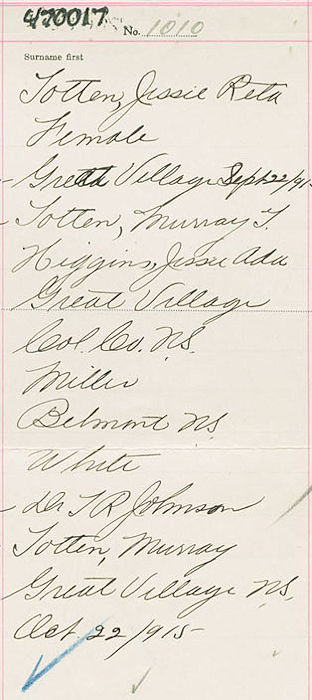 470017
No. 1010
Surname first
Totten, Jessie Reta
Female
Great Village Sept 22/915
Totten, Murray T.
Higgins, Jessie Ada
Great Village
Col. Co. N.S.
Miller
Belmont N.S.
White
Dr T R Johnson
Totten, Murray
Great Village N.S.
Oct 22/915